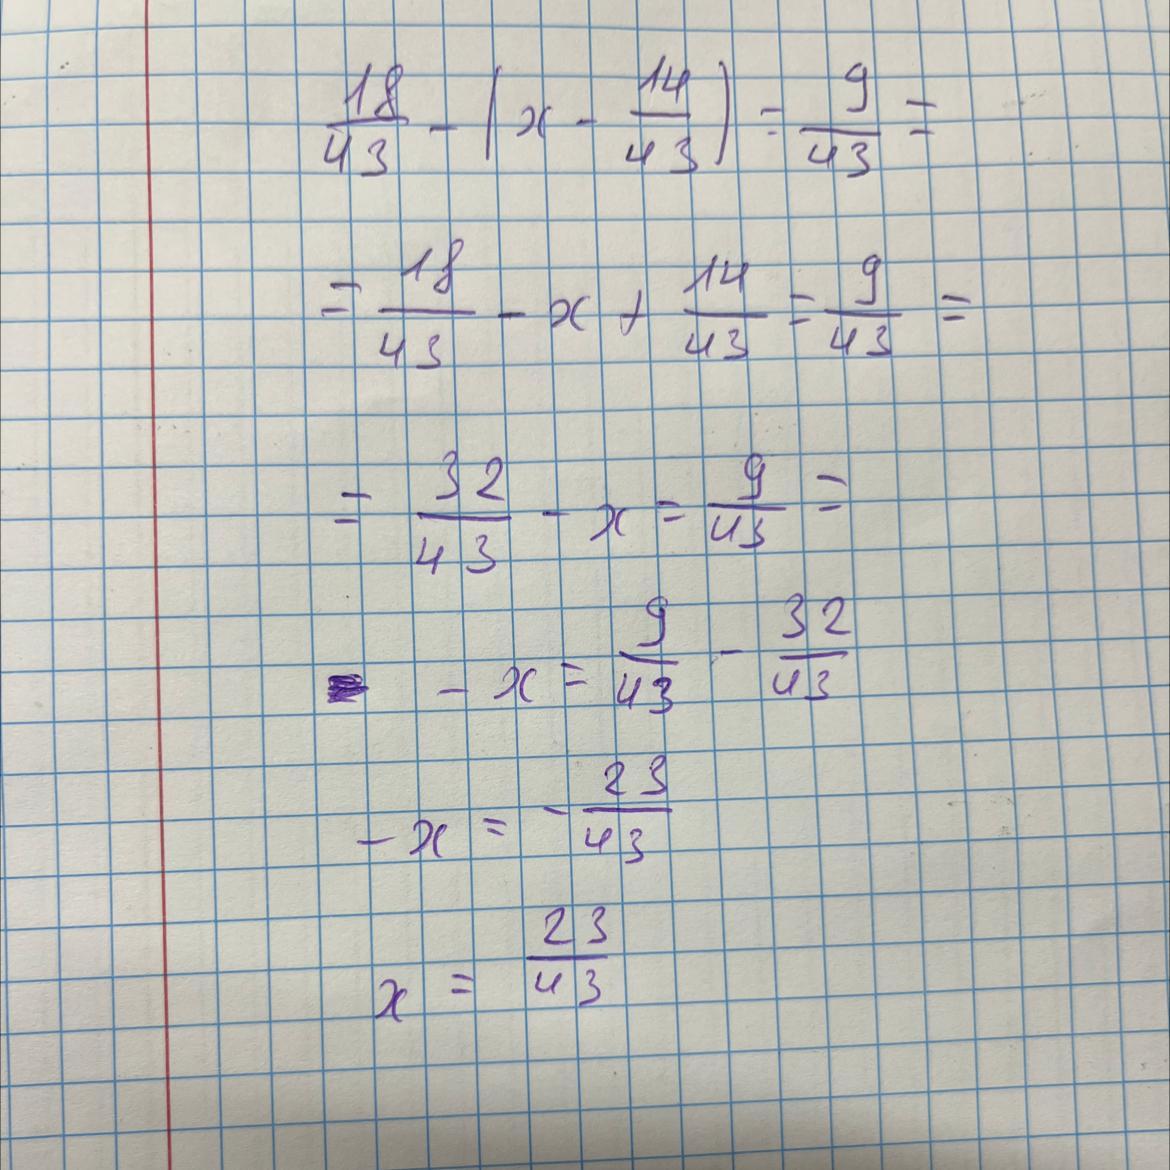 18/43 - (x - 14/43) = 9/43 =
= 18/43 - x + 14/43 = 9/43 =
= 32/43 - x = 9/43 =
- x = 9/43 - 32/43
- x = - 23/43
x = 23/43